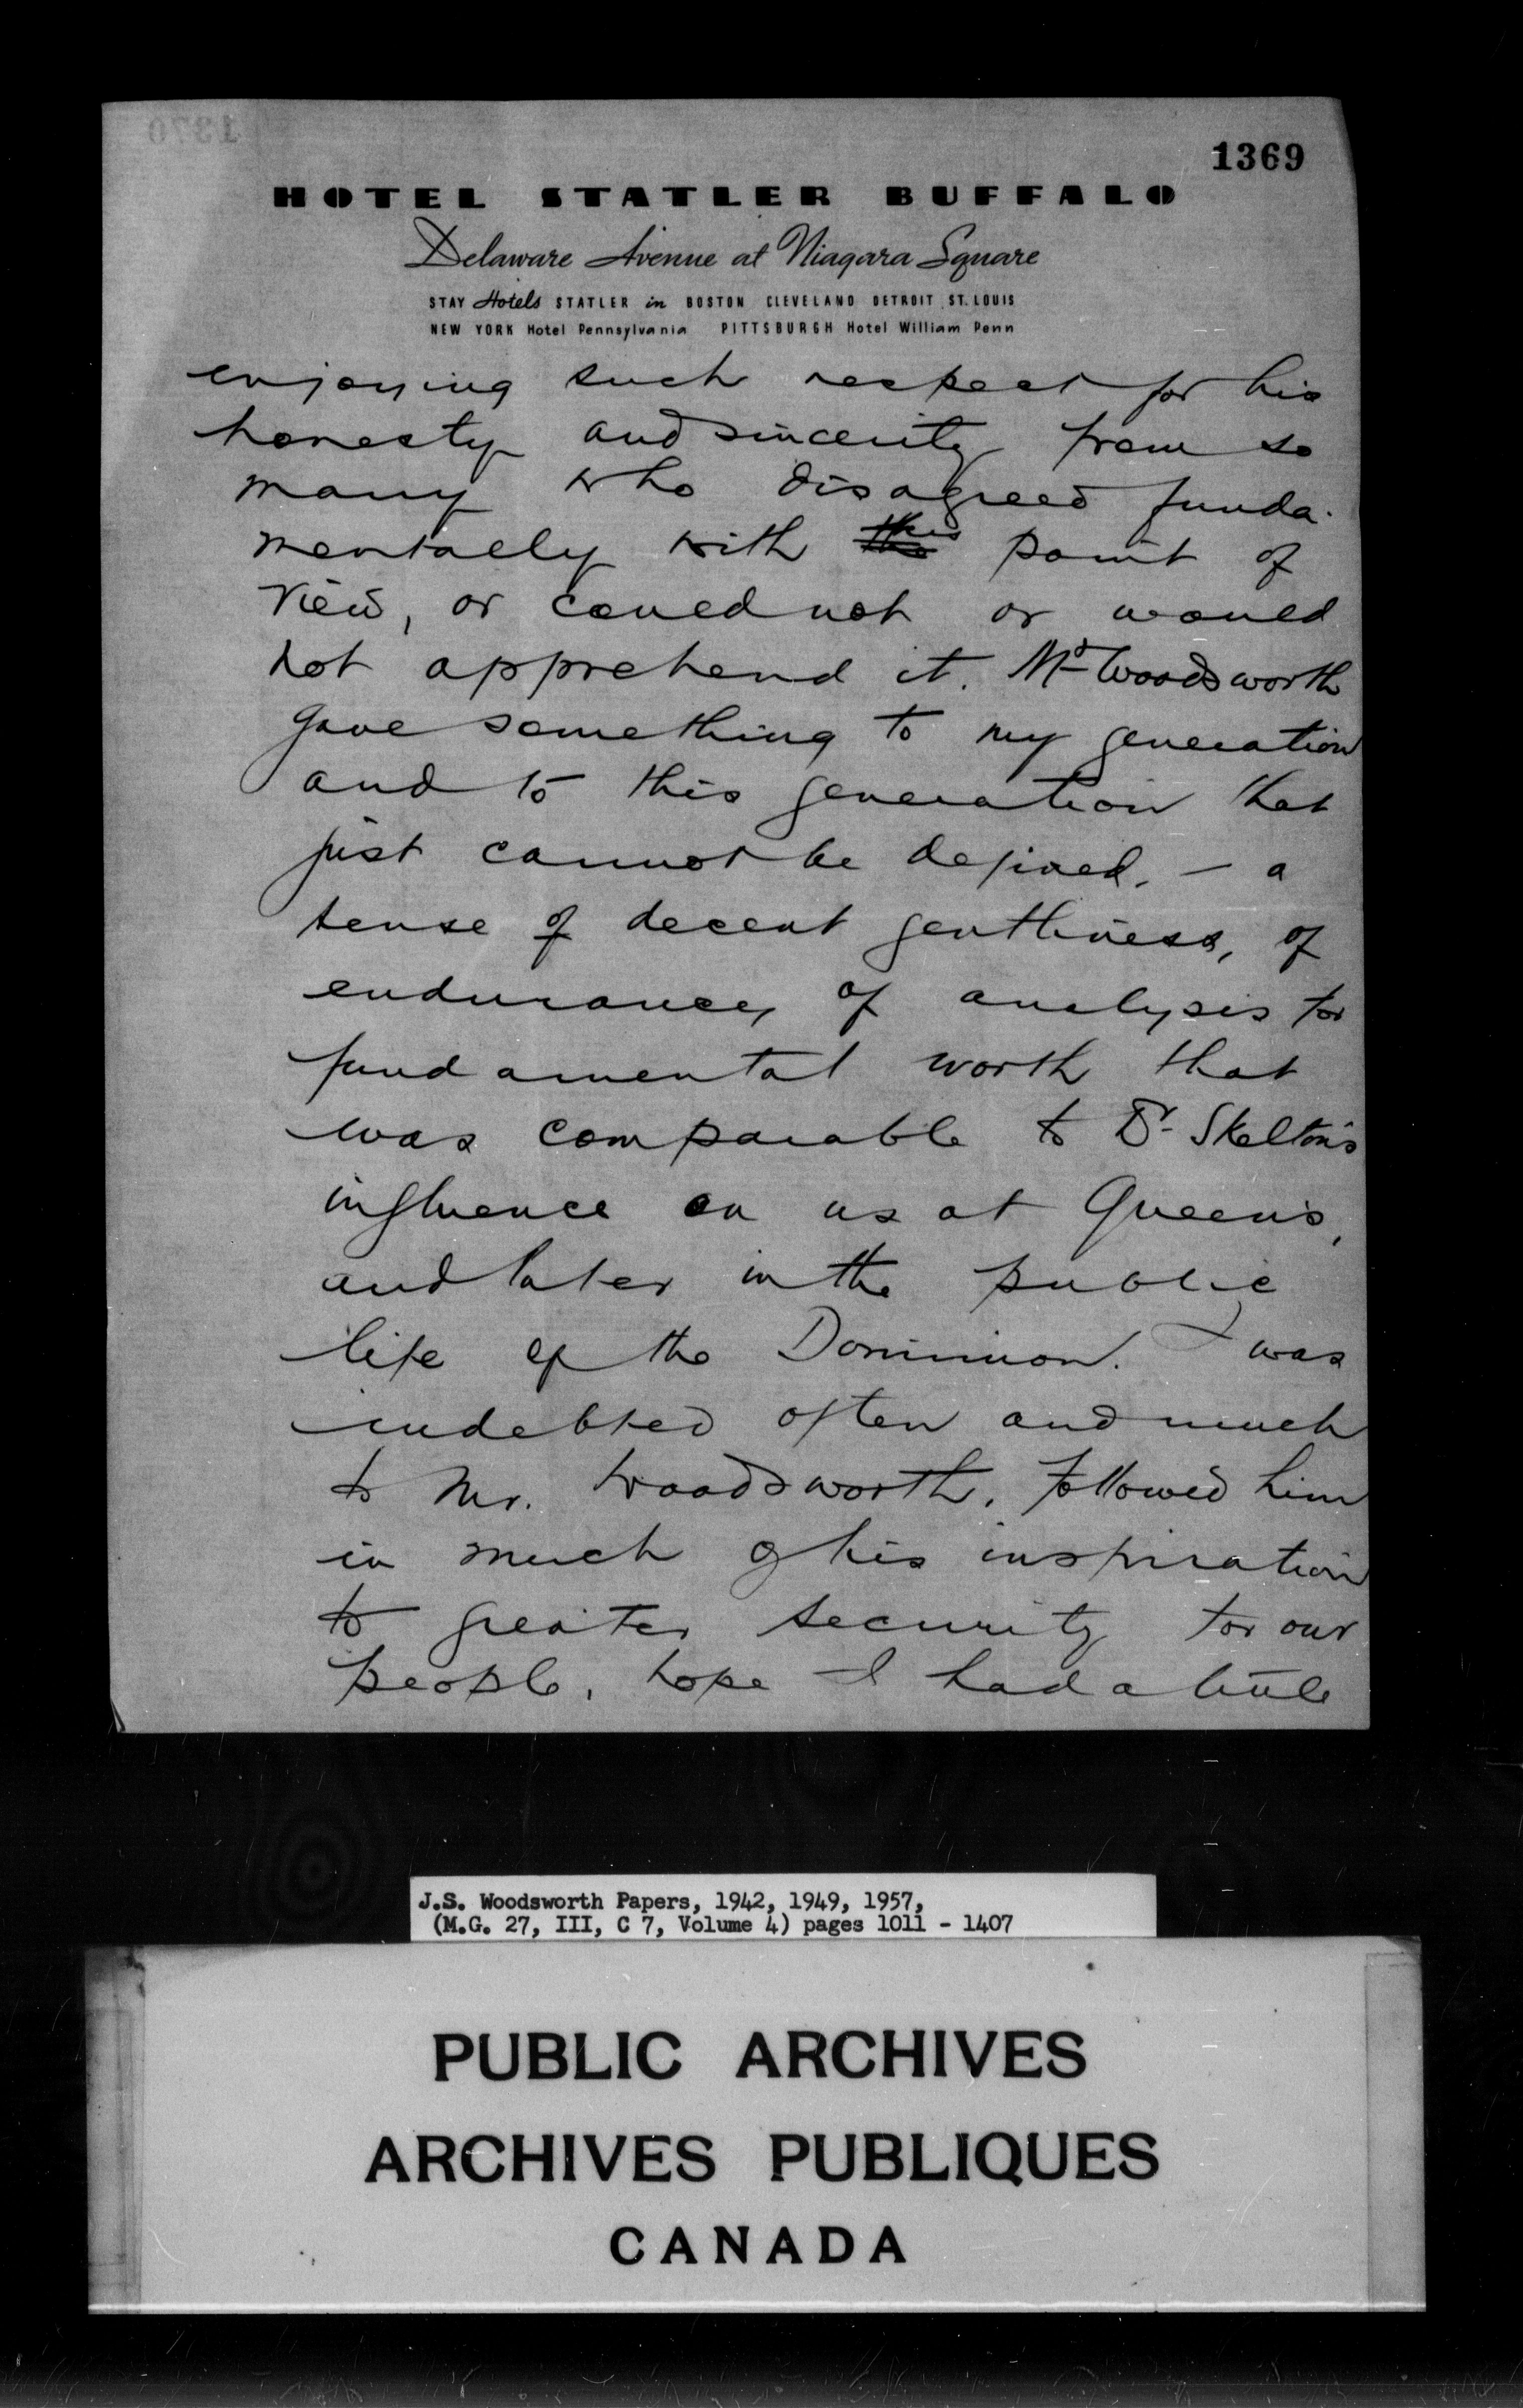 1370
1369
HOTEL STATLER BUFFALO
Delaware Avenue at Niagara Square
STAY Hotels STATLER in BOSTON CLEVELAND DETROIT ST. LOUIS
NEW YORK Hotel Pennsylvania PITTSBURGH Hotel William Penn
enjoying such respect for his
honesty and sincerity from so
many who disagreed funda-
mentally with this point of
view, or could not or would
not apprehend it. Mr Woodsworth
gave something to my generation
and to this generation that
just cannot be defined, — a
sense of decent gentleness, of
endurance, of analysis for
fundamental worth that
was comparable to Dr Skelton's
influence on us at Queen's,
and later in the public
life of the Dominion. I was
indebted often and much
to Mr. Woodsworth, followed him
in much of his inspiration
to greater security for our
people, hope I had a little
J.S. Woodsworth Papers, 1942, 1949, 1957,
(M.G. 27, III, C 7, Volume 4) pages 1011 - 1407
PUBLIC ARCHIVES
ARCHIVES PUBLIQUES
CANADA